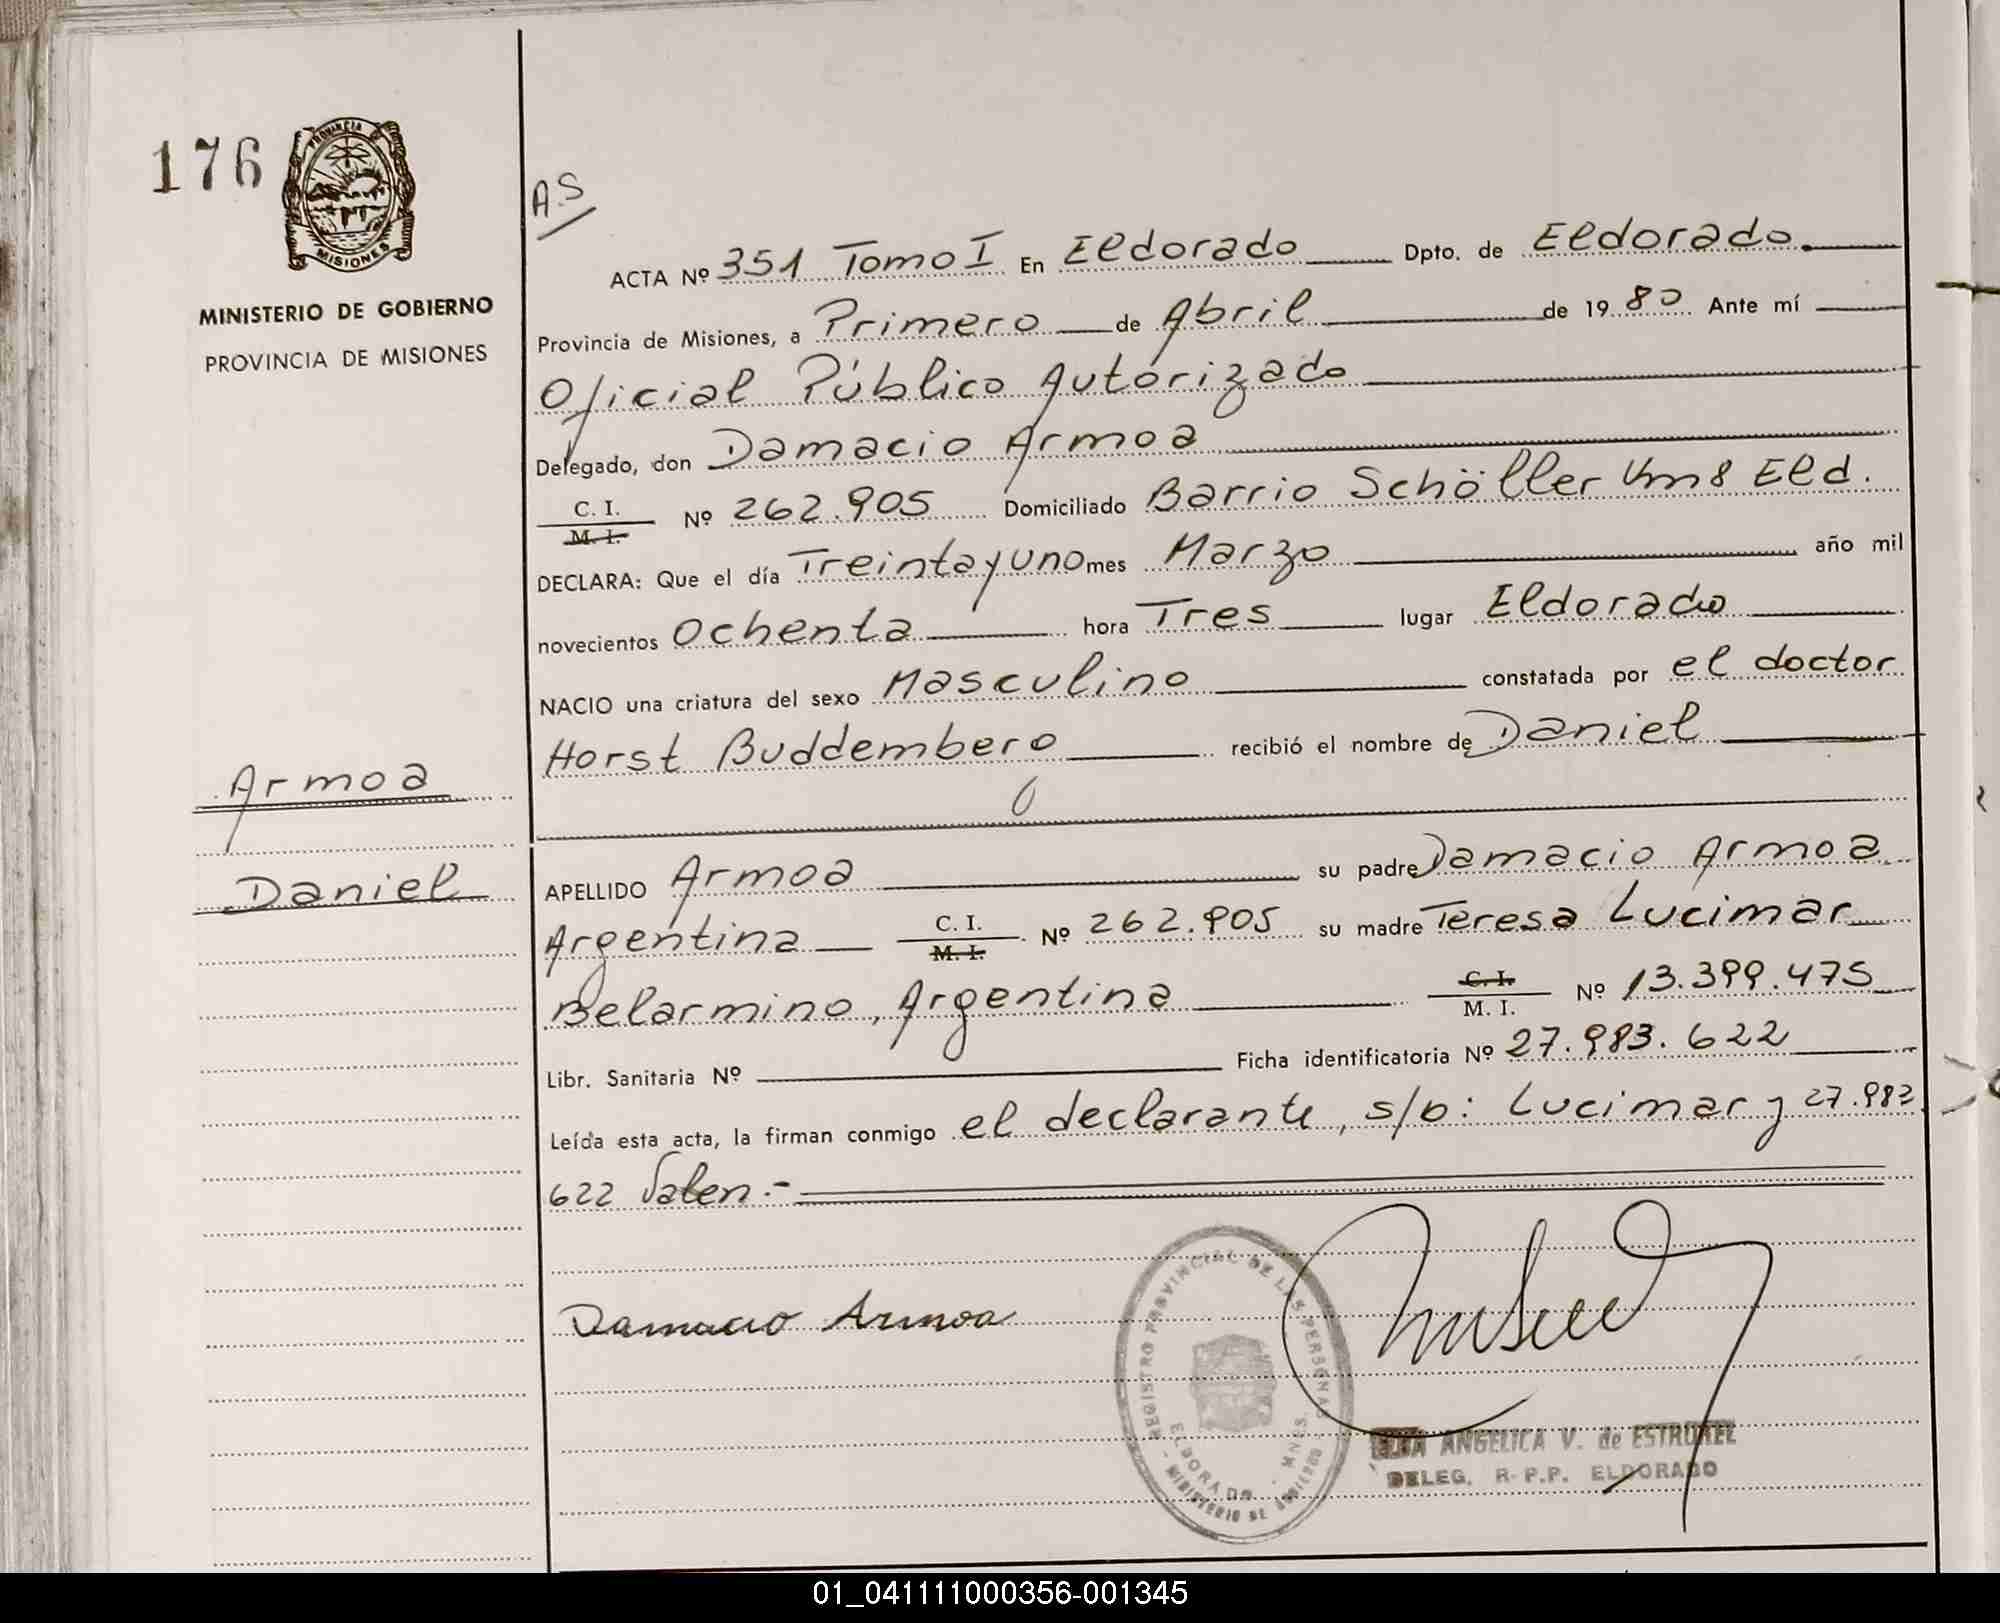 176
PROVINCIA
MISIONES
MINISTERIO DE GOBIERNO
PROVINCIA DE MISIONES
Armoa
Daniel
A.S
ACTA Nº 351 Tomo I En Eldorado Dpto. de Eldorado
Provincia de Misiones, a Primero de Abril de 1980 Ante mí
Oficial Público Autorizado
Delegado, don Damacio Armoa
C. I.
M. I. Nº 262.905 Domiciliado Barrio Schöller Km 8 Eld.
DECLARA: Que el día Treinta y uno mes Marzo año mil
novecientos Ochenta hora Tres lugar Eldorado
NACIO una criatura del sexo Masculino constatada por el doctor
Horst Buddemberg recibió el nombre de Daniel
APELLIDO Armoa su padre Damacio Armoa
Argentina C. I. M. I. Nº 262.905 su madre Teresa Lucimar
Belarmino, Argentina C. I. M. I. Nº 13.399.475
Libr. Sanitaria Nº Ficha identificatoria Nº 27.983.622
Leída esta acta, la firman conmigo el declarante, s/b: Lucimar y 27.983
622 Valen.-
Damacio Armoa
REGISTRO PROVINCIAL DE LAS PERSONAS
ELDORADO - MNES.
MINISTERIO DE GOBIERNO
ANGELICA V. de
DELEG. R.P.P. ELDORADO
01_041111000356-001345